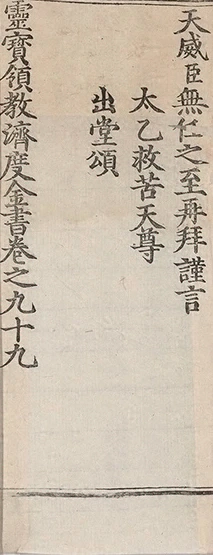 天威臣無任之至再拜謹言
太乙救苦天尊
出堂頌
靈寶領教濟度金書卷之九十九